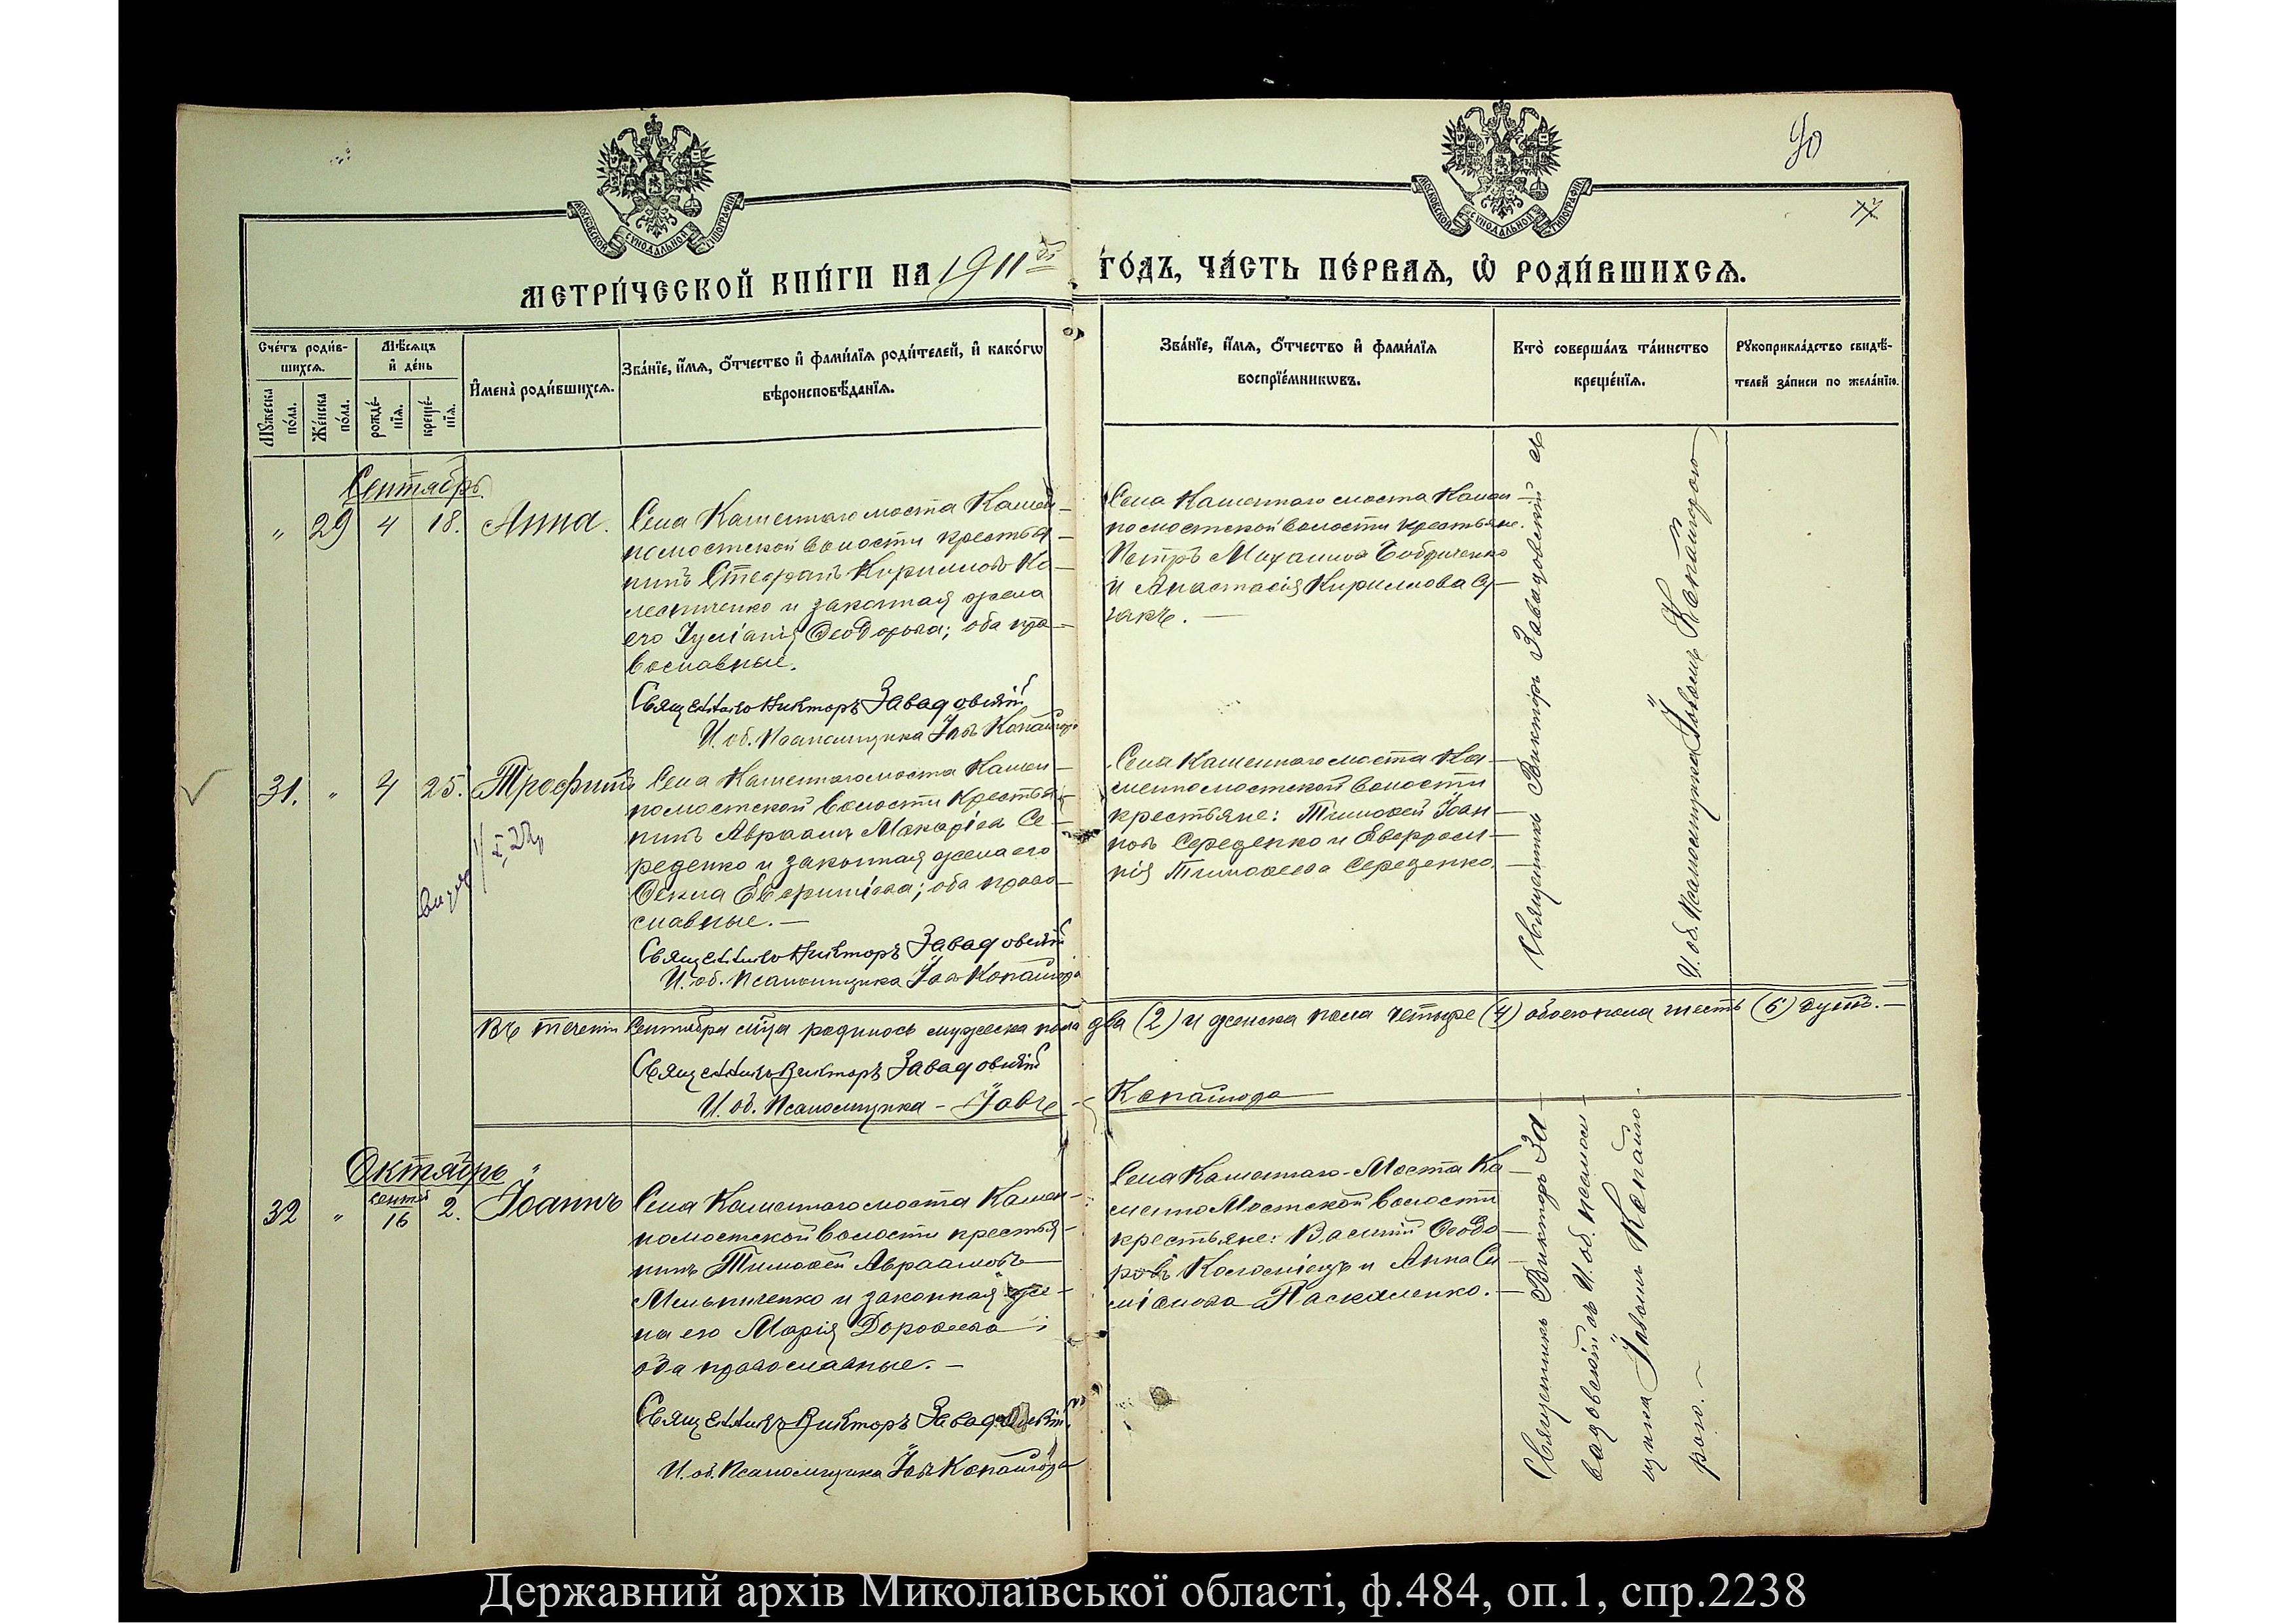 90
МОСКОВСКОЙ СѴНОДАЛЬНОЙ ТИПОГРАФІИ
МОСКОВСКОЙ СѴНОДАЛЬНОЙ ТИПОГРАФІИ
МЕТРИ́ЧЕСКОЙ КНИ́ГИ НА 1911й ГО́ДЪ, ЧА́СТЬ ПЕ́РВАѦ, Ѡ РОДИ́ВШИХСѦ.
Сче́тъ роди́в-
шихсѧ.
Мꙋжеска по́ла.
Же́нска по́ла.
Мѣ́сѧцъ
и҆ де́нь
рожде́-
нїѧ.
креще́-
нїѧ.
И҆мена̀ роди́вшихсѧ.
Зва́нїе, и҆́мѧ, о҆́тчество и҆ фами́лїѧ роди́телей, и҆ како́гѡ
вѣроисповѣ́данїѧ.
Зва́нїе, и҆́мѧ, о҆́тчество и҆ фами́лїѧ
воспрїе́мникѡвъ.
Кто̀ соверша́лъ та́инство
креще́нїѧ.
Рꙋкоприкла́дство свидѣ́-
телей за́писи по жела́нїю.
Сентябрь.
" 29 4 18. Анна.
Села Каменнаго моста Камен-
номостской волости крестья-
нинъ Стефанъ Кирилловъ Ко-
лесниченко и законная жена
его Іуліанія Ѳеодорова; оба пра-
вославные.
Священникъ Викторъ Завадовскій
И. об. Псаломщика Іовъ Копайгора
Села Каменнаго моста Камен-
номостской волости крестьяне.
Петръ Михаиловъ
и Анастасія Кириллова
Священникъ Викторъ Завадовскій съ
И. об. Псаломщика Іовомъ Копайгорою
31. " 4 25. Трофимъ
Села Каменнаго моста Камен-
номостской волости крестья-
нинъ Авраамъ Макаріевъ Се-
реденко и законная жена его
Ѳекла Евфиміева; оба право-
славные. —
Священникъ Викторъ Завадовскій
И. об. Псаломщика Іовъ Копайгора
Села Каменнаго моста Ка-
менномостской волости
крестьяне: Тимоѳей Іоан-
новъ Середенко и Евфроси-
нія Тимоѳеева Середенко.
Въ теченіи Сентября м-ца родилось мужеска пола два (2) и женска пола четыре (4) обоего пола шесть (6) душъ. —
Священникъ Викторъ Завадовскій
И. об. Псаломщика - Іовъ - Копайгора
Октябрь
32 " сентяб 16 2. Іоаннъ
Села Каменнаго моста Камен-
номостской волости крестья-
нинъ Тимоѳей Авраамовъ
Мельниченко и законная же-
на его Марія Дороѳеева;
оба православные. —
Священникъ Викторъ Завадовскій
И. об. Псаломщика Іовъ Копайгора
Села Каменнаго-Моста Ка-
менно Мостской волости
крестьяне: Василій Ѳеодо-
ровъ Коломіецъ и Анна Си-
міонова Паскаленко. —
Священникъ Викторъ За-
вадовскій съ И. об. псалом-
щика Іовомъ Копайго-
рою. —
Державний архів Миколаївської області, ф.484, оп.1, спр.2238